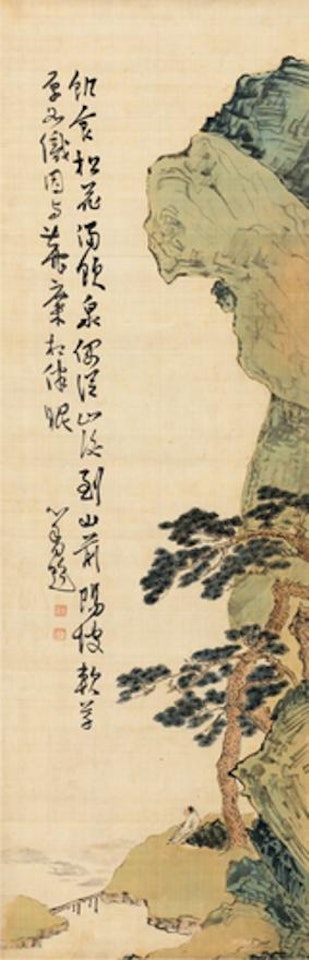 飢食松花渴飲泉偶從山後到山前陽坡軟草
厚如織因与鹿麛相伴眠
心畬題